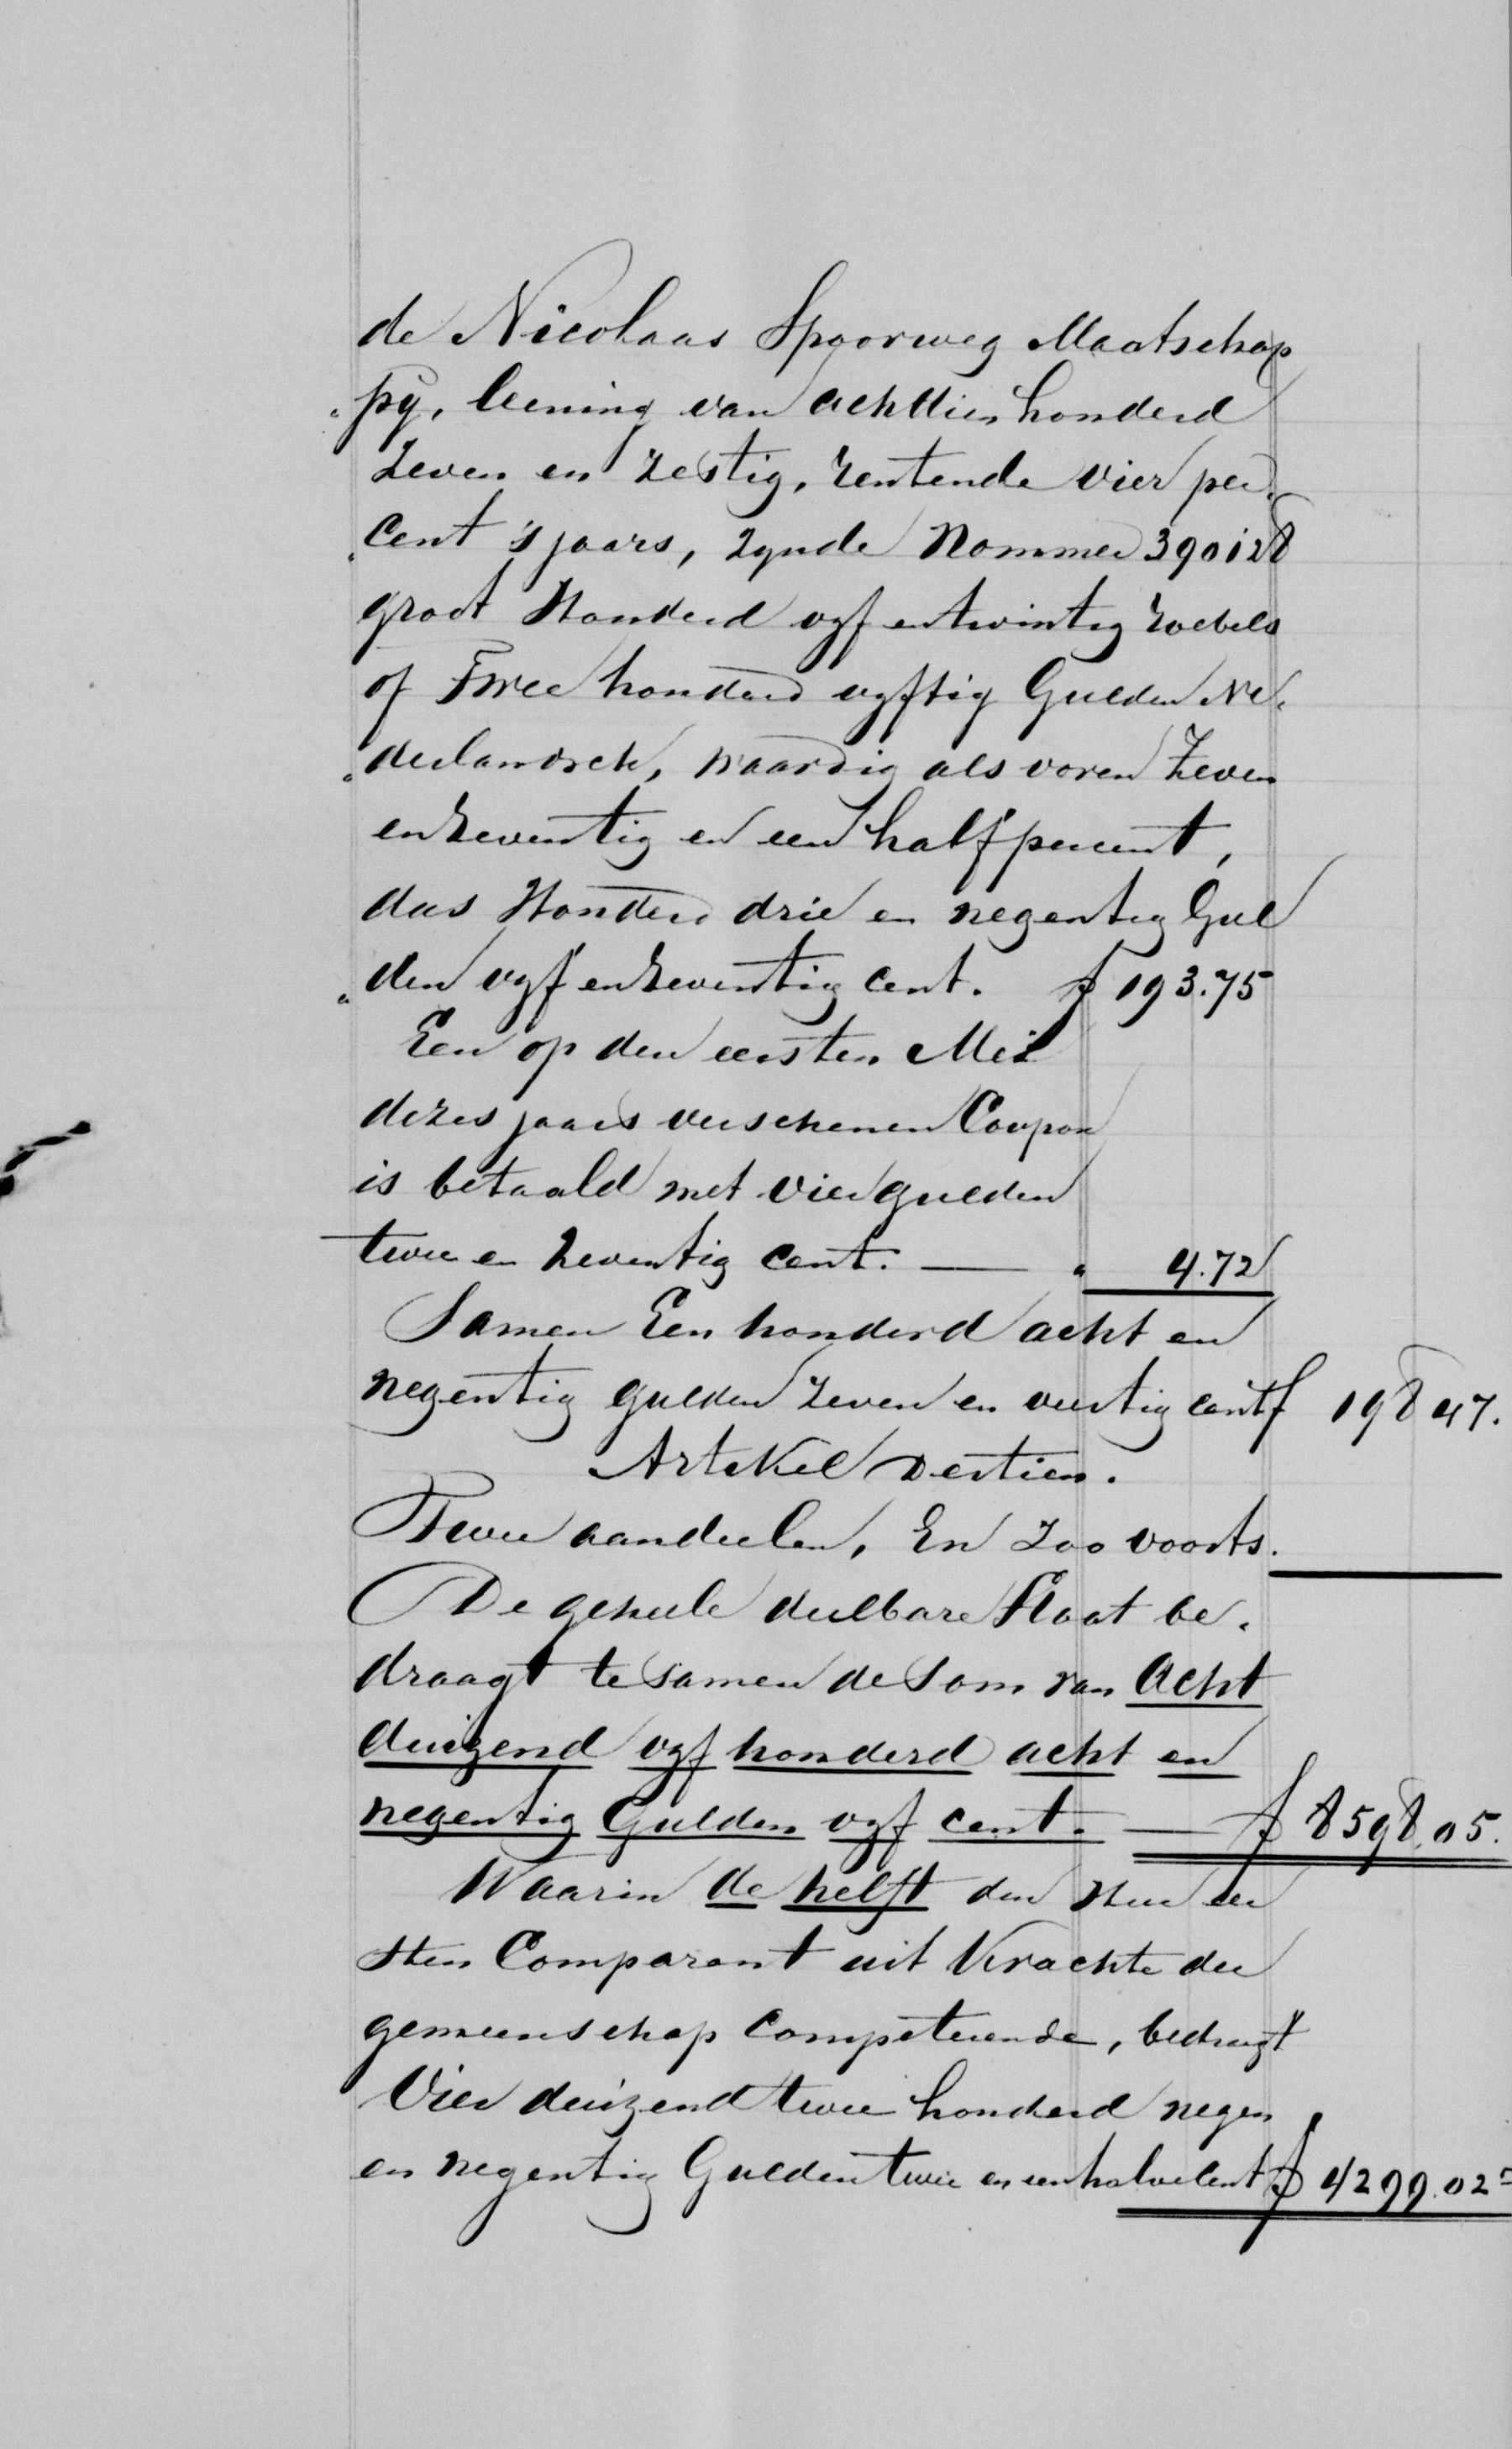 de Nicolaas Spoorweg Maatschap
„py, leening van achttien honderd
zeven en zestig, rentende vier per„
„cent 's jaars, zynde Nommer 390128
groot Honderd vyf en twintig roebels
of Twee honderd vyftig Gulden Ne„
„derlandsch, waardig als voren Zeven
en zeventig en een half percent,
dus Honderd drie en negentig Gul
„den vyf en zeventig cent. ƒ 193.75
Een op den eersten Mei
dezes jaars verschenen Coupon
is betaald met vier gulden
twee en zeventig cent. — „ 4.72
Samen Een honderd acht en
negentig gulden zeven en veertig cent ƒ 198 47.
Artekel Dertien.
Twee aandeelen, En zoo voorts.
De geheele deelbare Staat be„
draagt te samen de som van Acht
duizend vyf honderd acht en
negentig Gulden vyf cent. — ƒ 8598.05.
Waarin de helft den Heer eer
sten Comparant uit krachte der
gemeenschap Competeerende, bedraagt
Vier duizend twee honderd negen
en negentig Gulden twee en een halve Cent ƒ 4299.02⁵